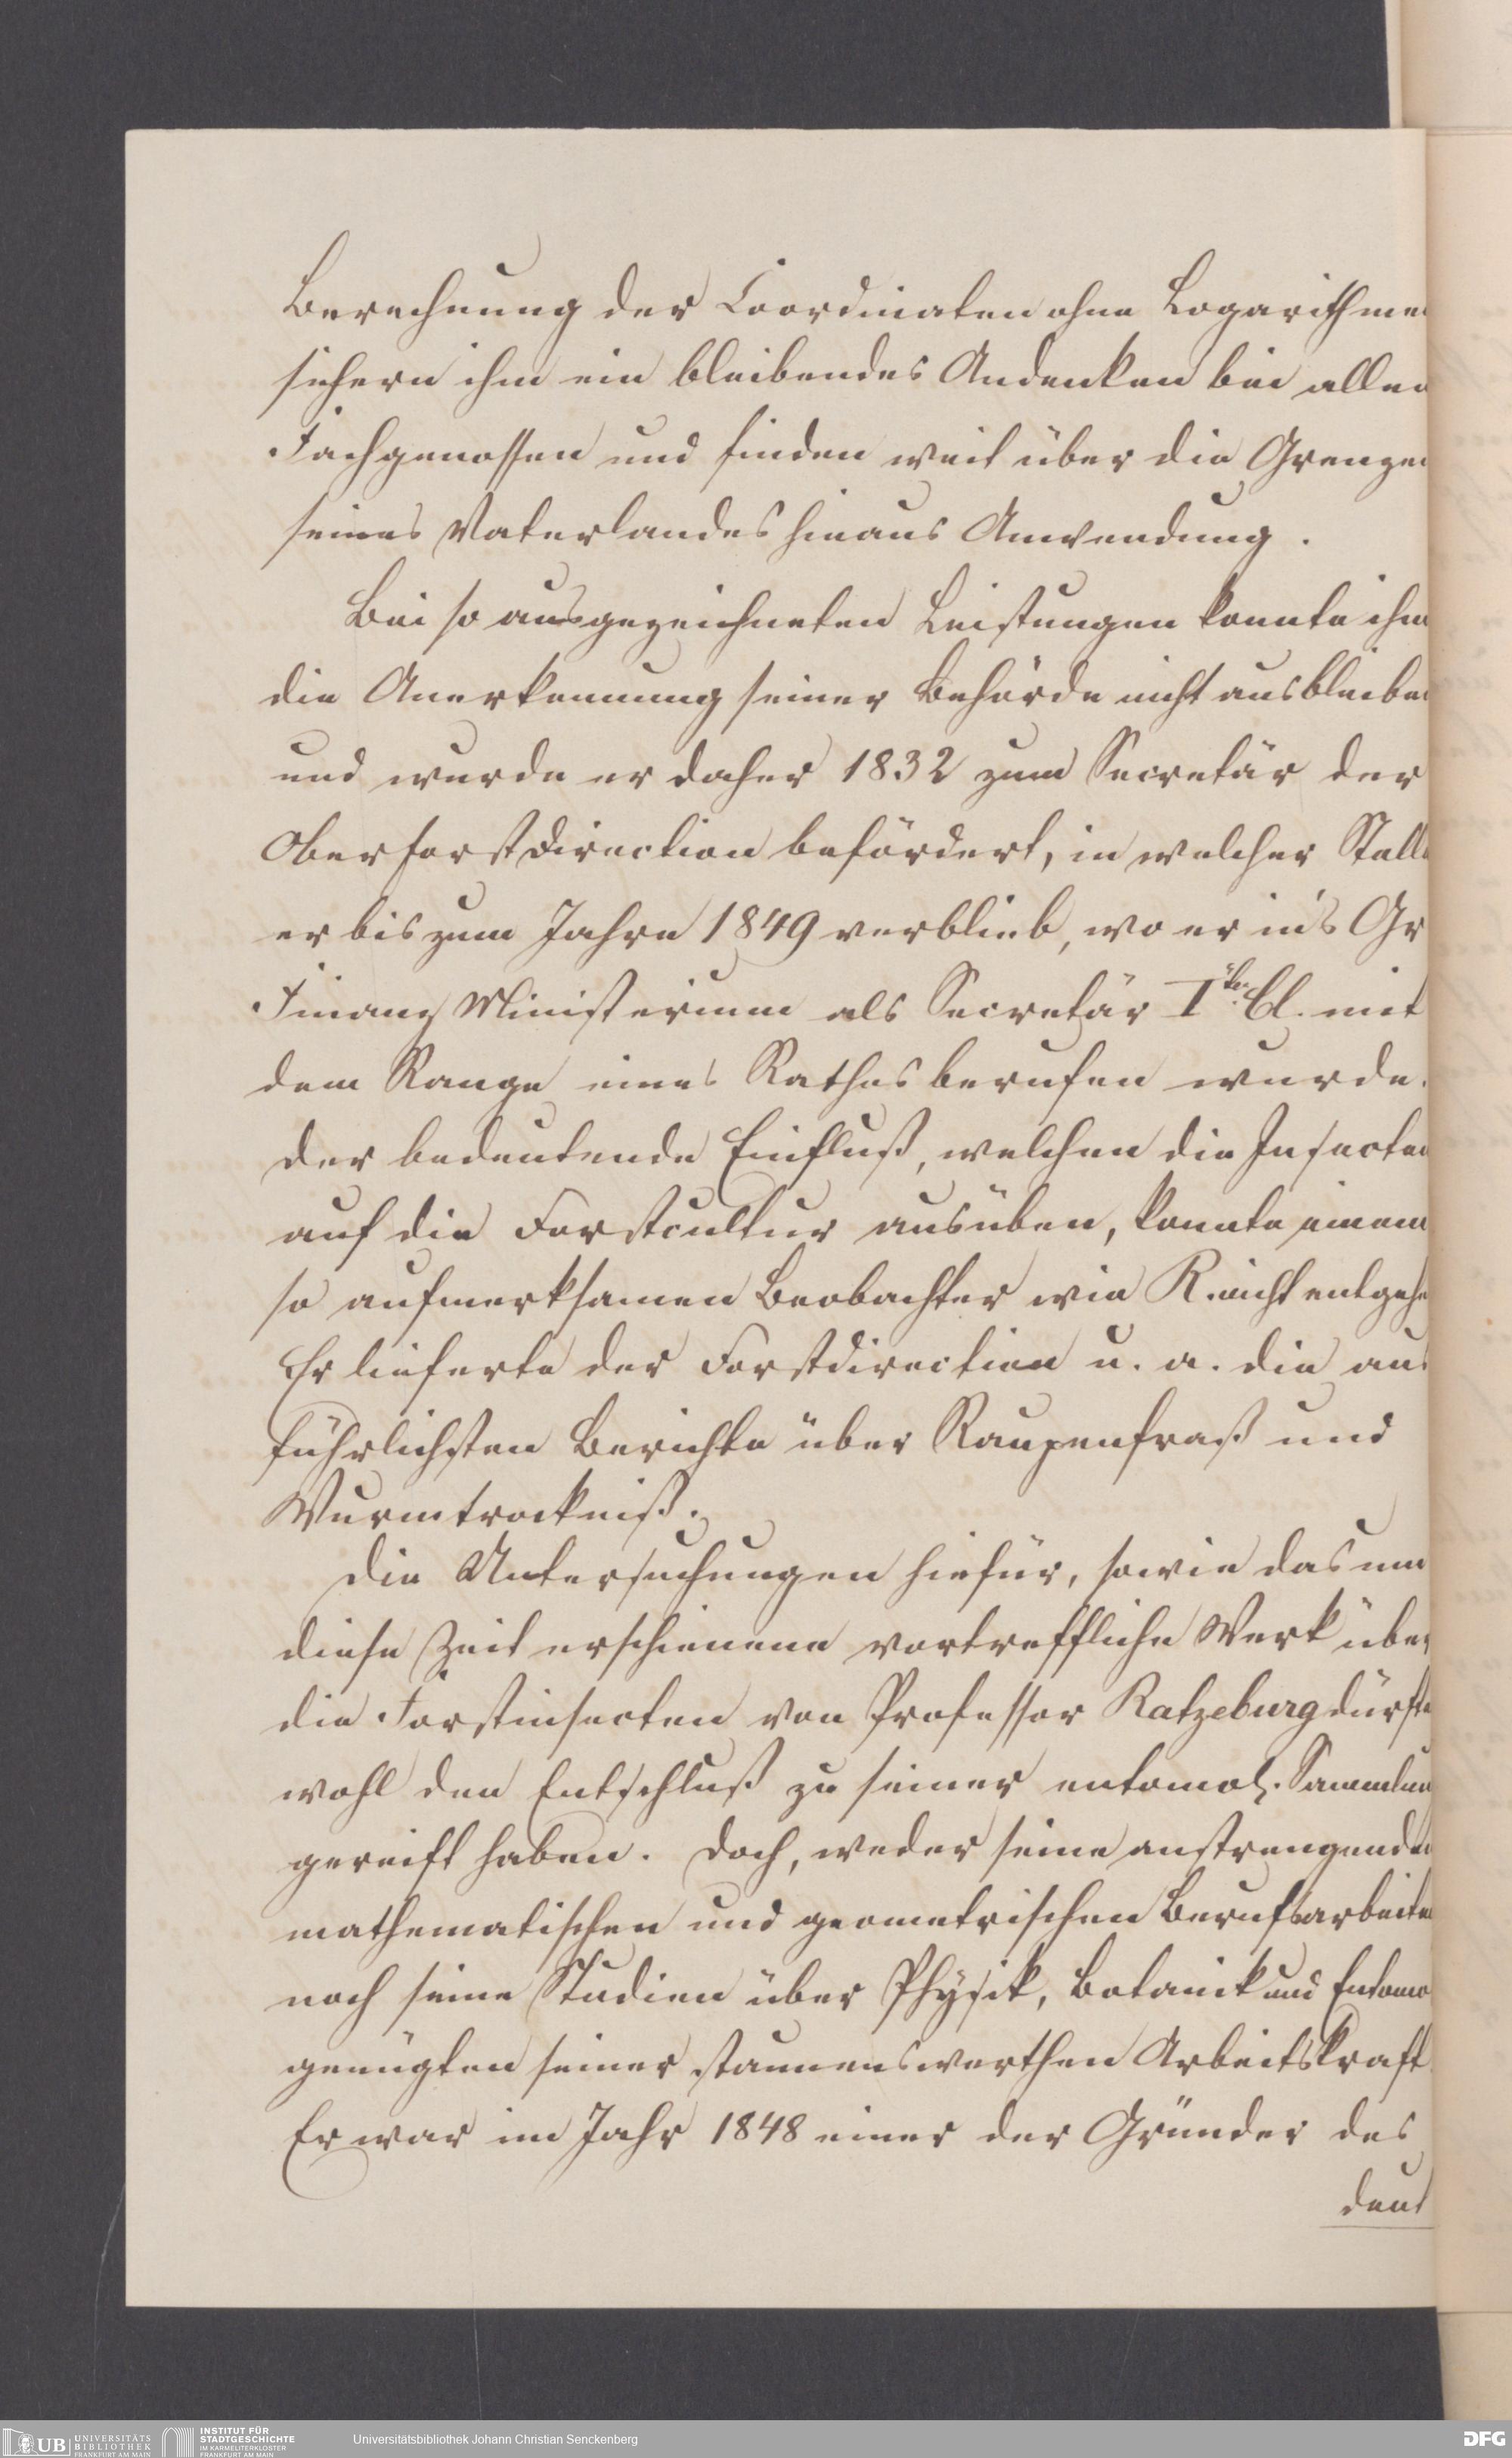 Berechnung der Coordinaten ohne Logarithmen
sichern ihm ein bleibendes Andenken bei allen
Fachgenossen und finden weit über die Grenzen
seines Vaterlandes hinaus Anwendung.
Bei so ausgezeichneten Leistungen konnte ihm
die Anerkennung seiner Behörde nicht ausbleiben
und wurde er daher 1832 zum Secretär der
Oberforstdirection befördert, in welcher Stelle
er bis zum Jahre 1849 verblieb, wo er in's Gr
Finanz Ministerium als Secretär Iter Cl. mit
dem Range eines Rathes berufen wurde.
Der bedeutende Einfluß, welchen die Insecten
auf die Forstcultur ausüben, konnte einem
so aufmerksamen Beobachter wie R. nicht entgehe
Er lieferte der Forstdirection u. a. die aus
führlichsten Berichte über Raupenfraß und
Wurmtrockniß.
Die Untersuchungen hiefür, sowie das um
diese Zeit erschienene vortreffliche Werk über
die Forstinsecten von Professor Ratzeburg dürfte
wohl den Entschluß zu seiner entomol. Sammlun
gereift haben. Doch, weder seine anstrengenden
mathematischen und geometrischen Berufsarbeiten
noch seine Studien über Physik, Botanik und Entomo
genügten seiner staunenswerthen Arbeitskraft.
Er war im Jahr 1848 einer der Gründer des
deut
UB UNIVERSITÄTS
BIBLIOTHEK
FRANKFURT AM MAIN
INSTITUT FÜR
STADTGESCHICHTE
IM KARMELITERKLOSTER
FRANKFURT AM MAIN
Universitätsbibliothek Johann Christian Senckenberg
DFG